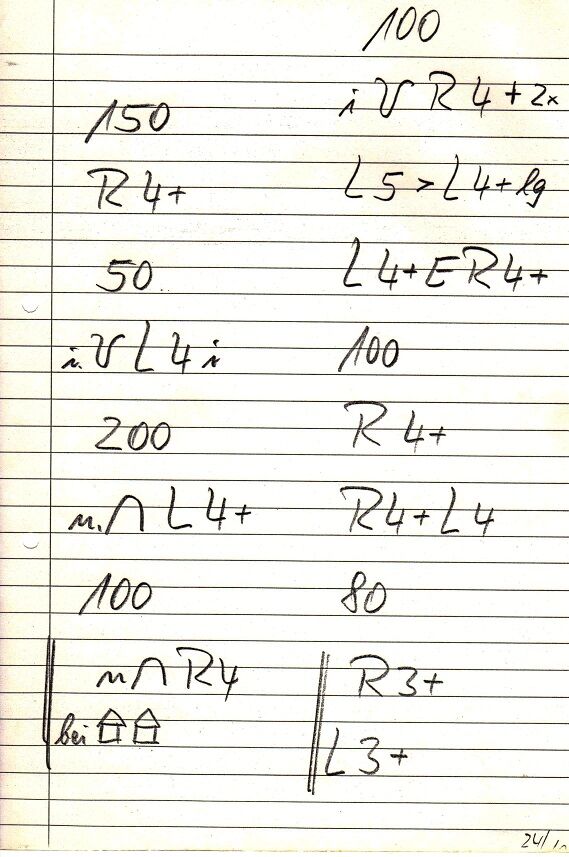 150
R 4+
50
i. V L 4 i
200
n. ∩ L 4+
100
n ∩ R4
bei
100
i V R 4+ 2x
L 5 > L 4+ lg
L 4+ E R 4+
100
R 4+
R4+L4
80
R 3+
L 3+